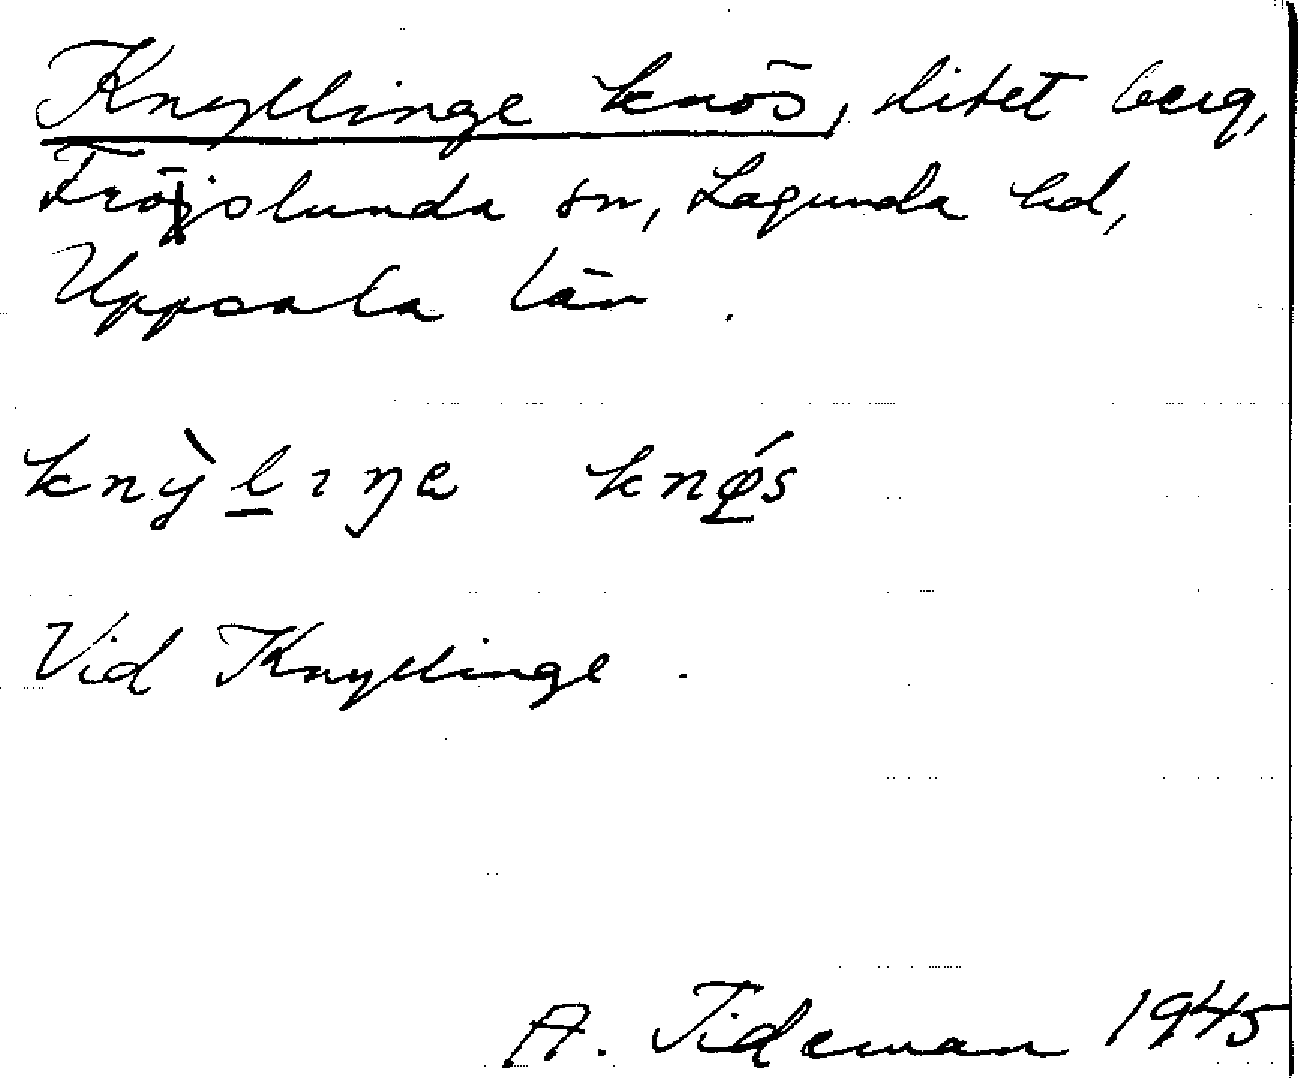 Knyllinge knös, litet berg,
Fröslunda sn, Lagunda hd,
Uppsala län.
knỳl̲ıŋe knǿ̲s
Vid Knyllinge.
A. Tideman 1945